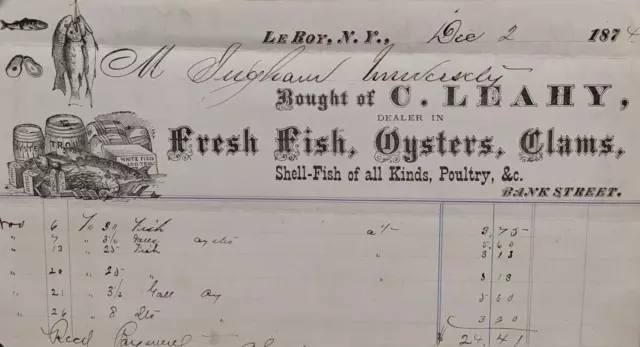 LE ROY, N. Y., Dec 2 1874
M Ingham University
Bought of C. LEAHY,
DEALER IN
Fresh Fish, Oysters, Clams,
Shell-Fish of all Kinds, Poultry, &c.
BANK STREET.
TROU
WHITE FISH
Nov 6 To 30 Fish 3.75
" 7 " 3½ 5.60
" 13 " 25 Fish " 3 13
" 20 " 25 " " 3 13
" 21 " 3½ Gall Oy 5 60
" 26 " 8 Qts 3 20
24.41
Recd Payment